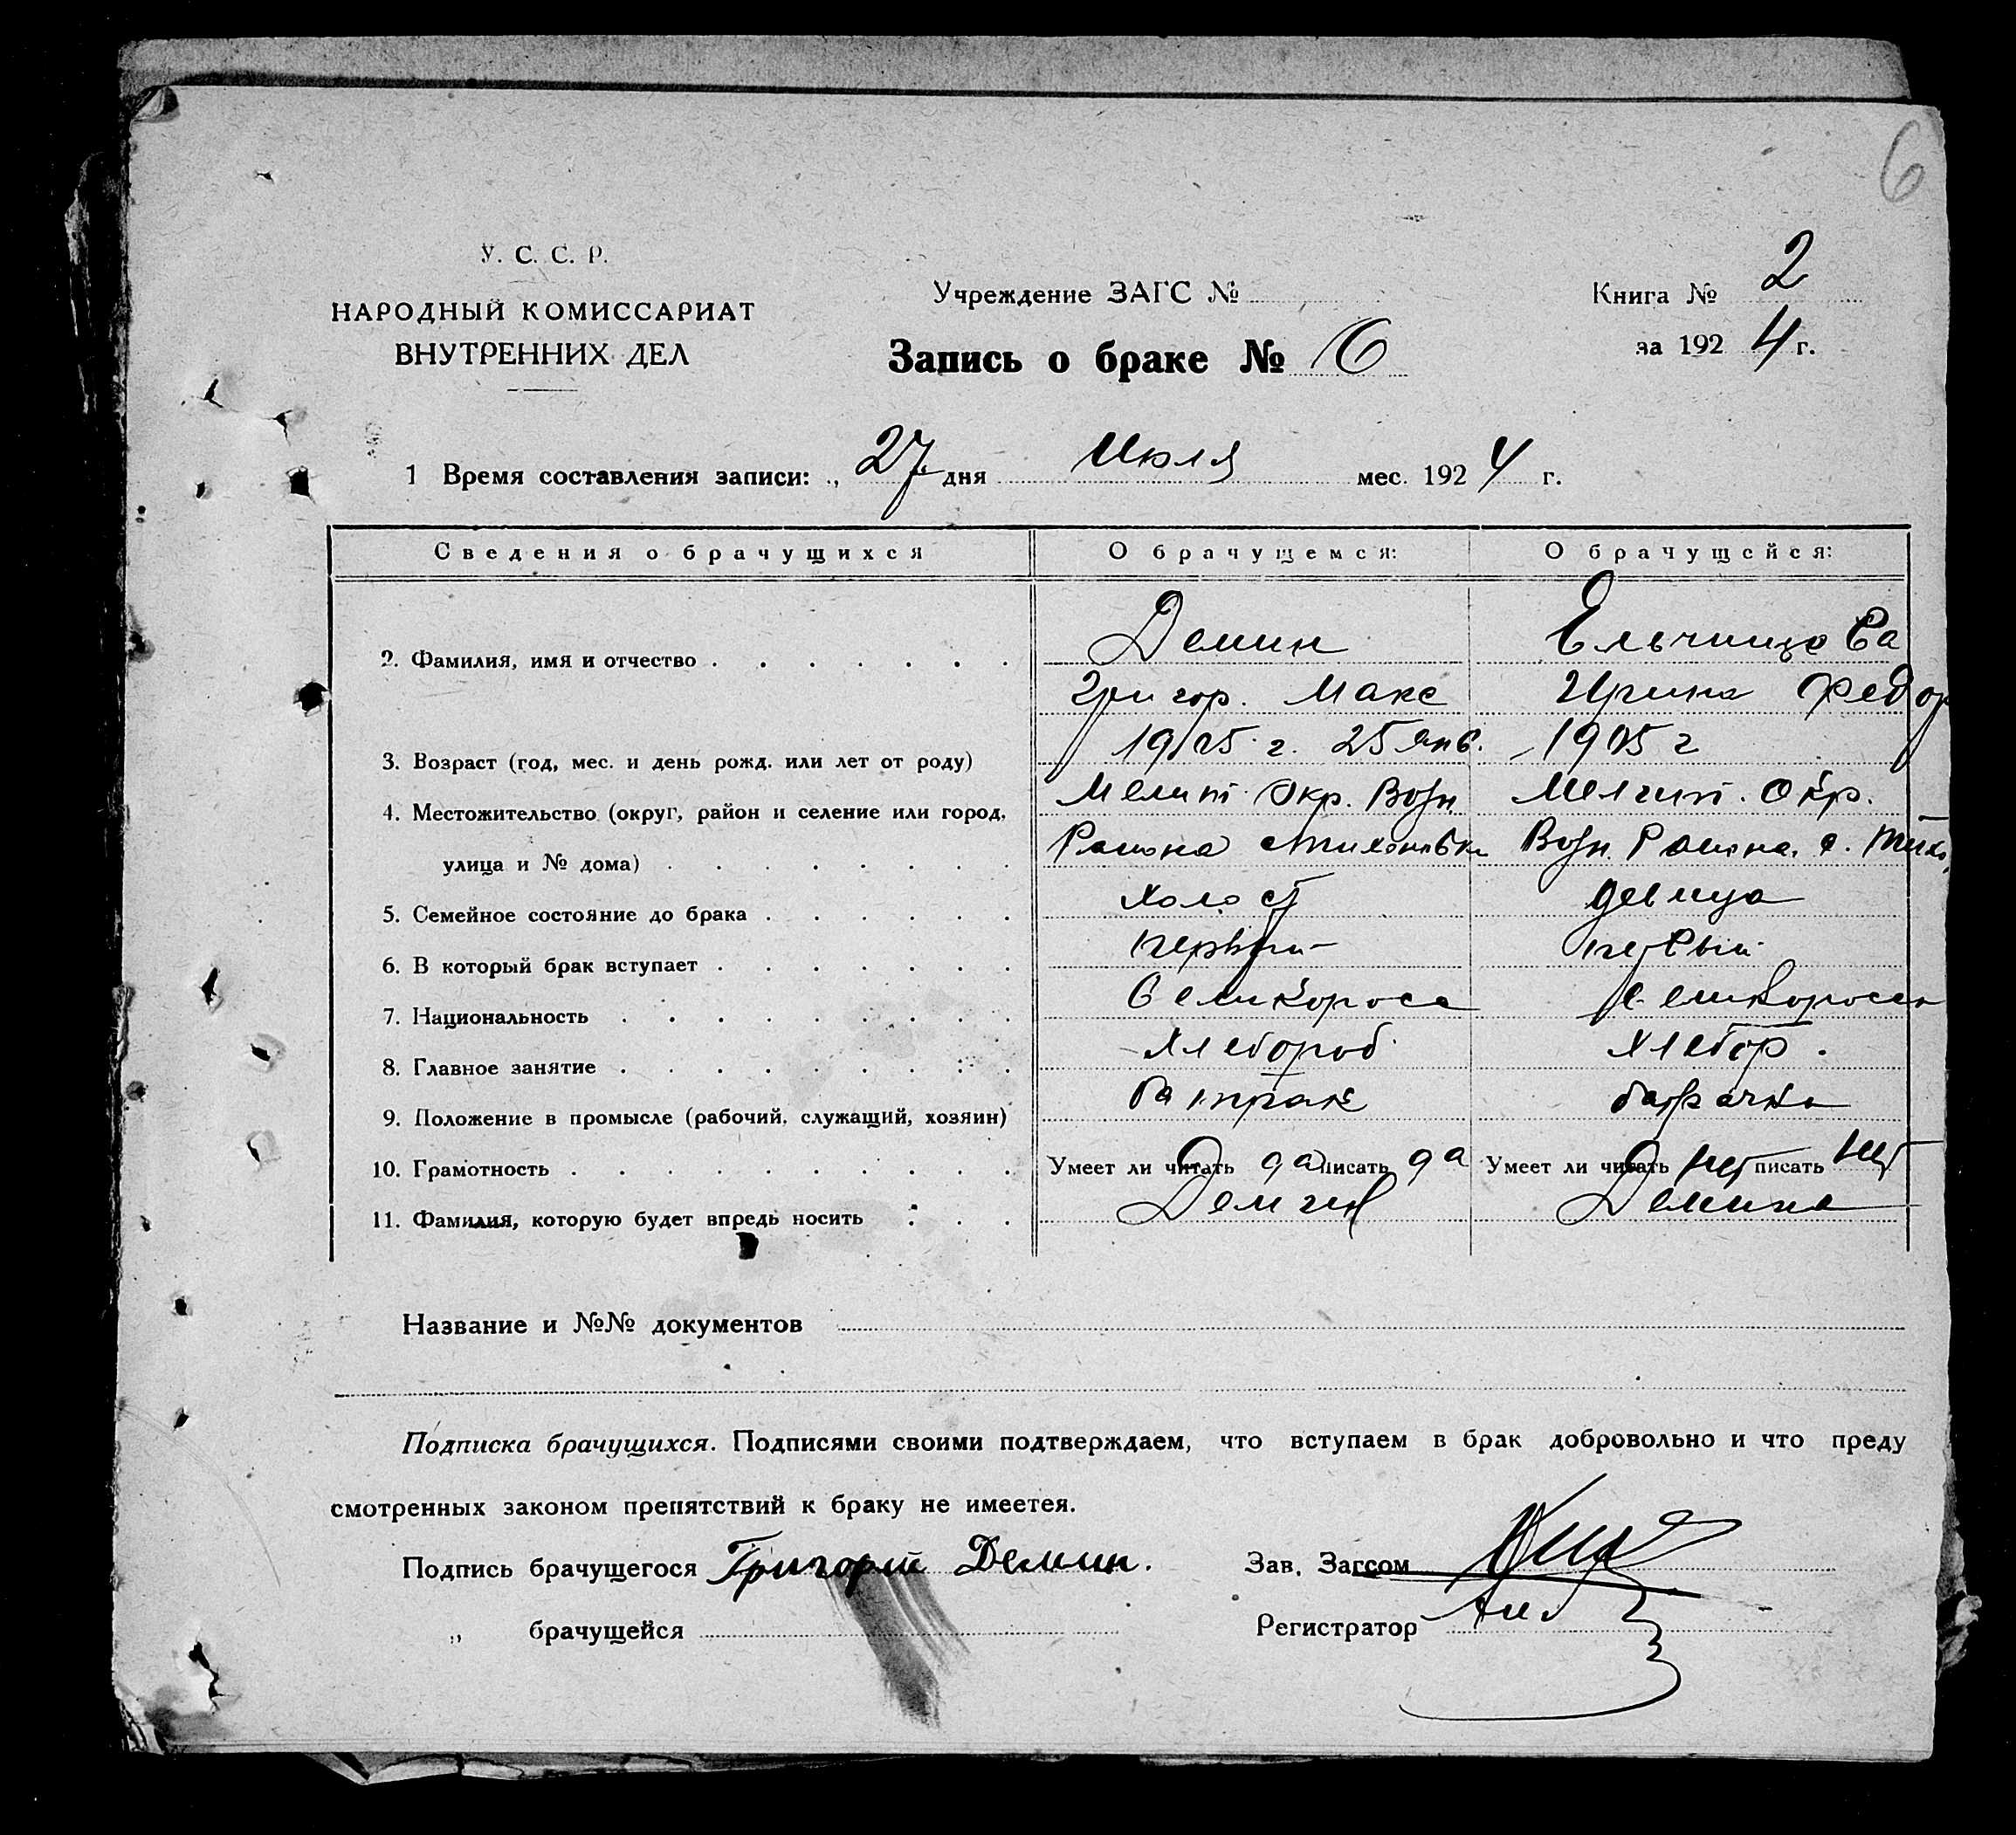 6
У. С. С. Р.
НАРОДНЫЙ КОМИССАРИАТ
ВНУТРЕННИХ ДЕЛ
Учреждение ЗАГС №
Книга № 2
за 1924 г.
Запись о браке № 6
1 Время составления записи: „ 27 дня Июля мес. 1924 г.
Сведения о брачущихся О брачущемся: О брачущейся:
2. Фамилия, имя и отчество Демин
Григор. Макс Ирина Федор
3. Возраст (год, мес. и день рожд. или лет от роду) 1905 г. 25 янв. 1905 г
4. Местожительство (округ, район и селение или город, Мелит Окр. Возн Мелит. Окр.
улица и № дома) Района Тихоновка Возн. Района. с. Тихо
5. Семейное состояние до брака холост девица
6. В который брак вступает первый первый
7. Национальность великоросс великоросска
8. Главное занятие хлебороб хлебор.
9. Положение в промысле (рабочий, служащий, хозяин) батрак батрачка
10. Грамотность Умеет ли читать да писать да Умеет ли читать нет писать нет
11. Фамилия, которую будет впредь носить Демин Демина
Название и №№ документов
Подписка брачущихся. Подписями своими подтверждаем, что вступаем в брак добровольно и что преду
смотренных законом препятствий к браку не имеетея.
Подпись брачущегося Григорий Демин. Зав. Загсом
„ брачущейся Регистратор